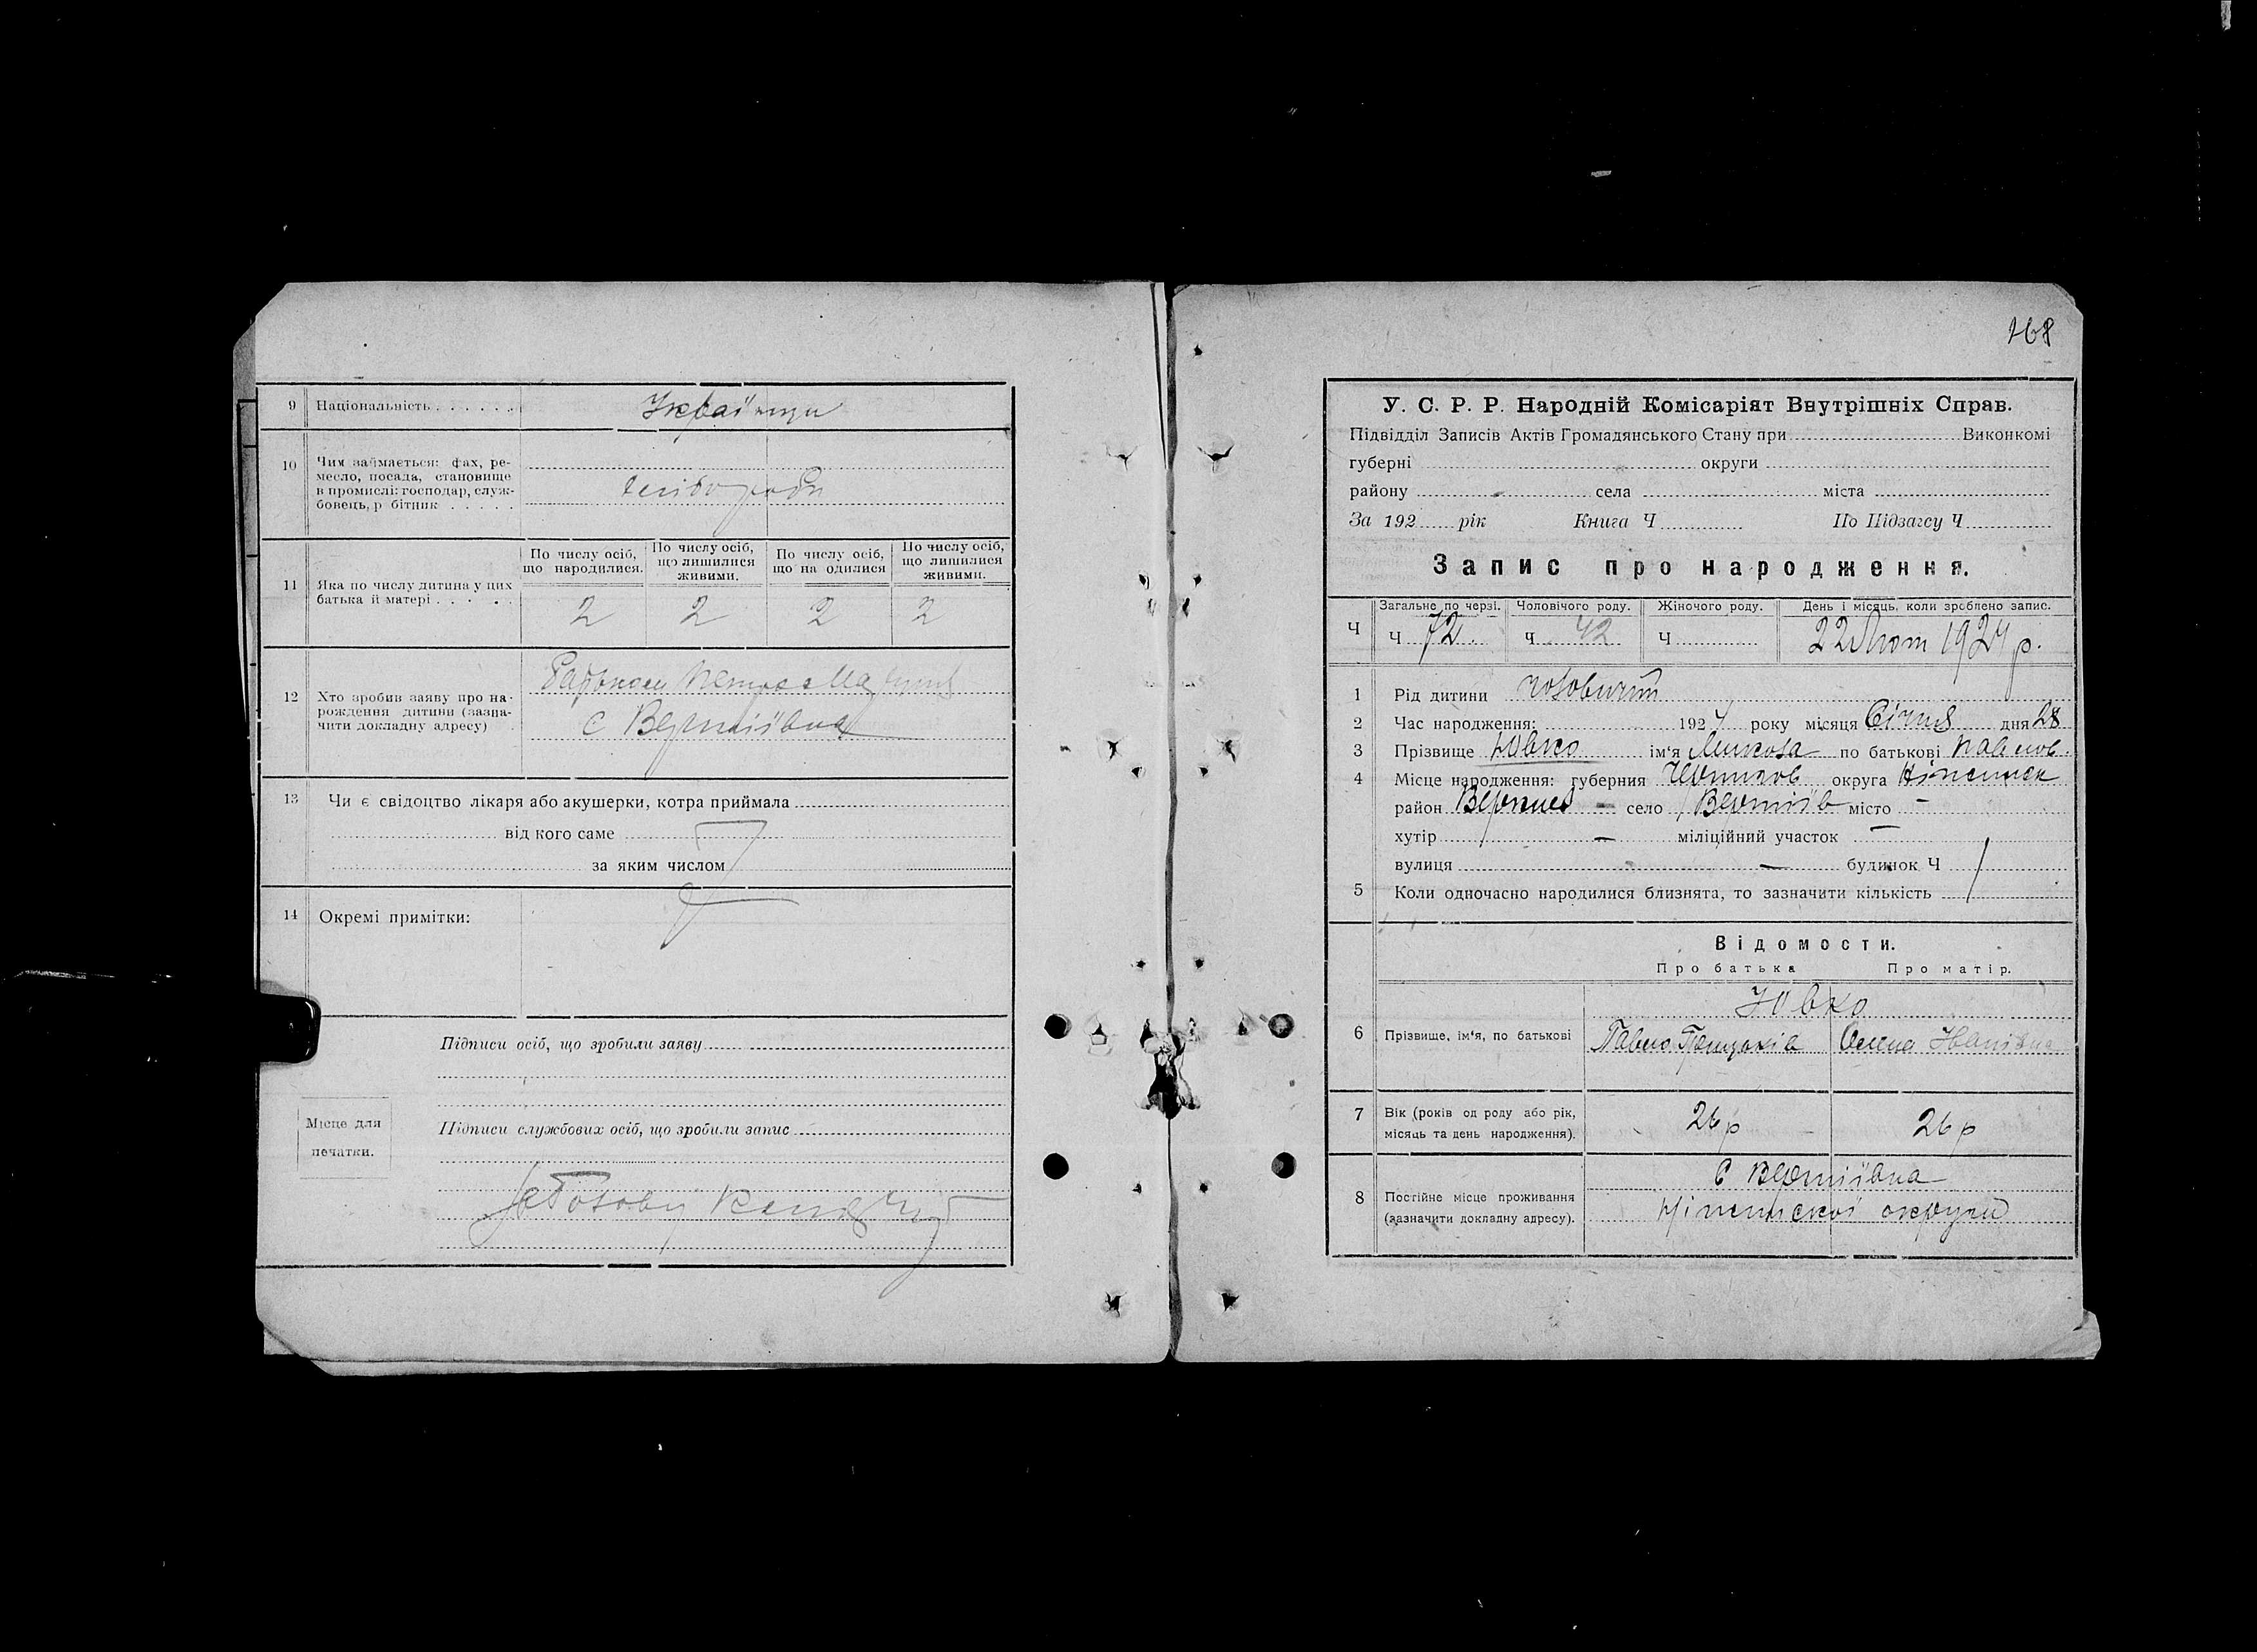 9 Національність . . . . . . Українци
10 Чим займається: фах, ре-
месло, посада, становище
в промислі: господар, служ-
бовець, р бітник . . . . .
хлібороби
11 Яка по числу дитина у цих
батька й матері . . . . .
По числу осіб, що народилися.
По числу осіб, що лишилися живими.
По числу осіб, що на одилися
По числу осіб, що лишилися живими.
2 2 2 2
12 Хто зробив заяву про на-
рождення дитини (зазна-
чити докладну адресу)
с Вертіївка
13 Чи є свідоцтво лікаря або акушерки, котра приймала
від кого саме
за яким числом
14 Окремі примітки:
Підписи осіб, що зробили заяву
Місце для
печатки.
Підписи службових осіб, що зробили запис
168
У. С. Р. Р. Народній Комісаріят Внутрішніх Справ.
Підвідділ Записів Актів Громадянського Стану при Виконкомі
губерні округи
району села міста
За 192 рік Книга Ч По Підзагсу Ч
Запис про народження.
Загальне по черзі. Чоловічого роду. Жіночого роду. День і місяць, коли зроблено запис.
Ч Ч 72 Ч 42 Ч 22 Лют 1924 р.
1 Рід дитини чоловичий
2 Час народження: 1924 року місяця Січня дня 28
3 Прізвище Ювко ім'я Микола по батькові Павлов.
4 Місце народження: губерния Чернигов округа Ніженськ
район село Вертіїв місто –
хутір – міліційний участок –
вулиця – будинок Ч
5 Коли одночасно народилися близнята, то зазначити кількість
Відомости.
Про батька Про матір.
Ювко
6 Прізвище, ім'я, по батькові Павло Олена Іванівна
7 Вік (років од роду або рік,
місяць та день народження).
26 р 26 р
8 Постійне місце проживання
(зазначити докладну адресу).
с Вертіївка
Ніженської округи